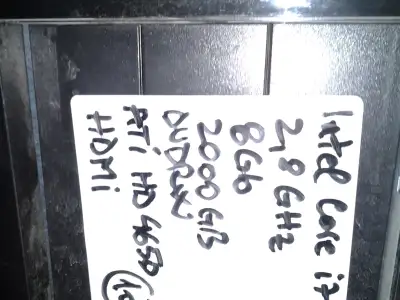 Intel Core i7
2,8 GHz
8Gb
2000 GB
DVDRW
ATi HD 4650
HDMi